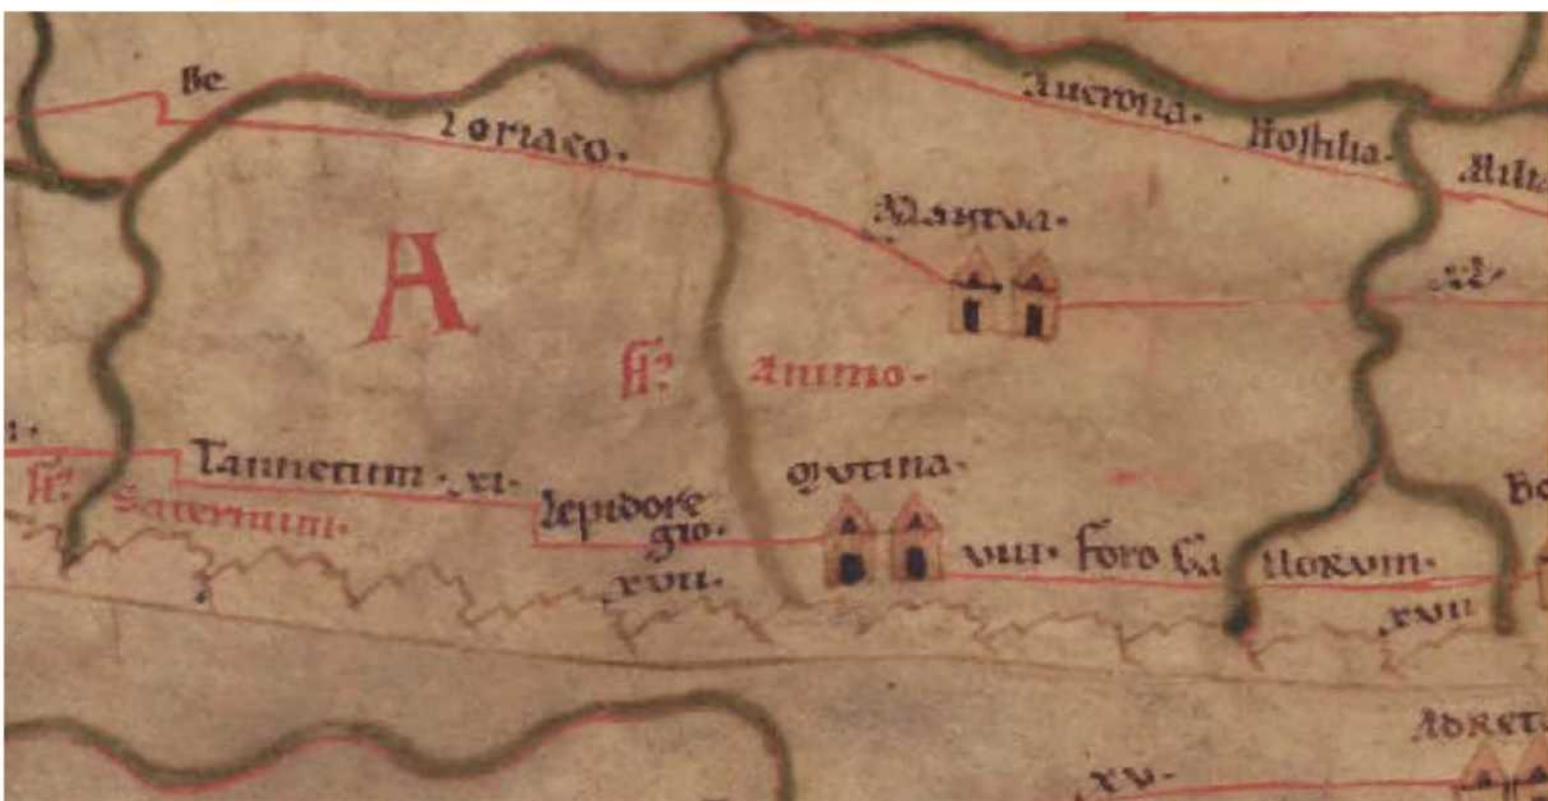 Be
Loriaco.
Auerona.
Hostilia.
Mantua.
A
fl.
Animo.
Tannetum. xi.
fl.
Saternum.
Lepidore
gio.
xvii.
Mutina.
viiii. Foro Ga llorum.
xvii
xv.